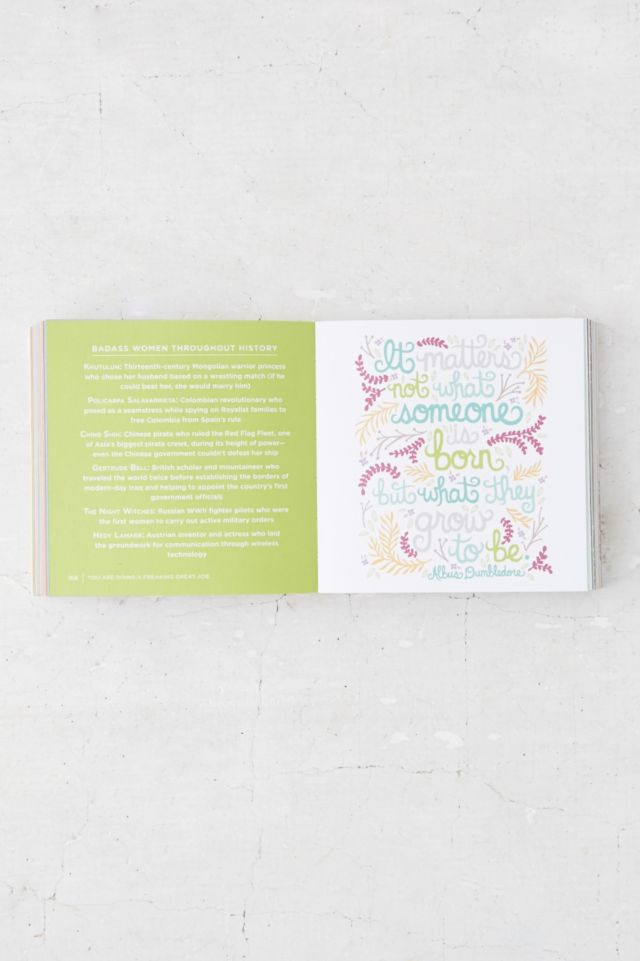 BADASS WOMEN THROUGHOUT HISTORY
KHUTULUN: Thirteenth-century Mongolian warrior princess
who chose her husband based on a wrestling match (if he
could beat her, she would marry him)
POLICARPA SALAVARRIETA: Colombian revolutionary who
posed as a seamstress while spying on Royalist families to
free Colombia from Spain's rule
CHING SHIH: Chinese pirate who ruled the Red Flag Fleet, one
of Asia's biggest pirate crews, during its height of power—
even the Chinese government couldn't defeat her ship
GERTRUDE BELL: British scholar and mountaineer who
traveled the world twice before establishing the borders of
modern-day Iraq and helping to appoint the country's first
government officials
THE NIGHT WITCHES: Russian WWII fighter pilots who were
the first women to carry out active military orders
HEDY LAMARR: Austrian inventor and actress who laid
the groundwork for communication through wireless
technology
YOU ARE DOING A FREAKING GREAT JOB.
It matters
not what
someone
is
born
but what they
grow
to be.
Albus Dumbledore